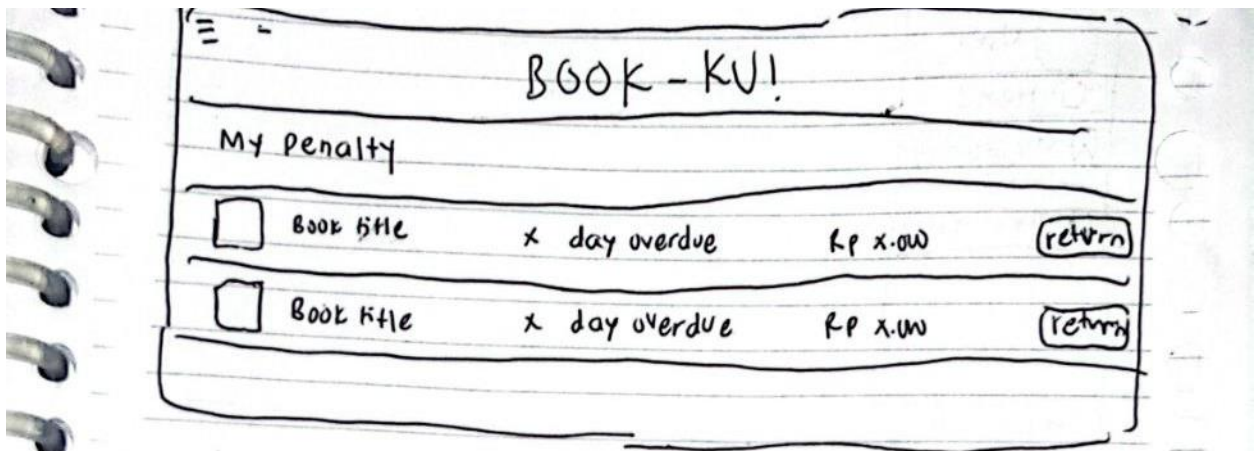 BOOK - KU!
My Penalty
Book title x day overdue Rp x.000 return
Book title x day overdue Rp x.000 return